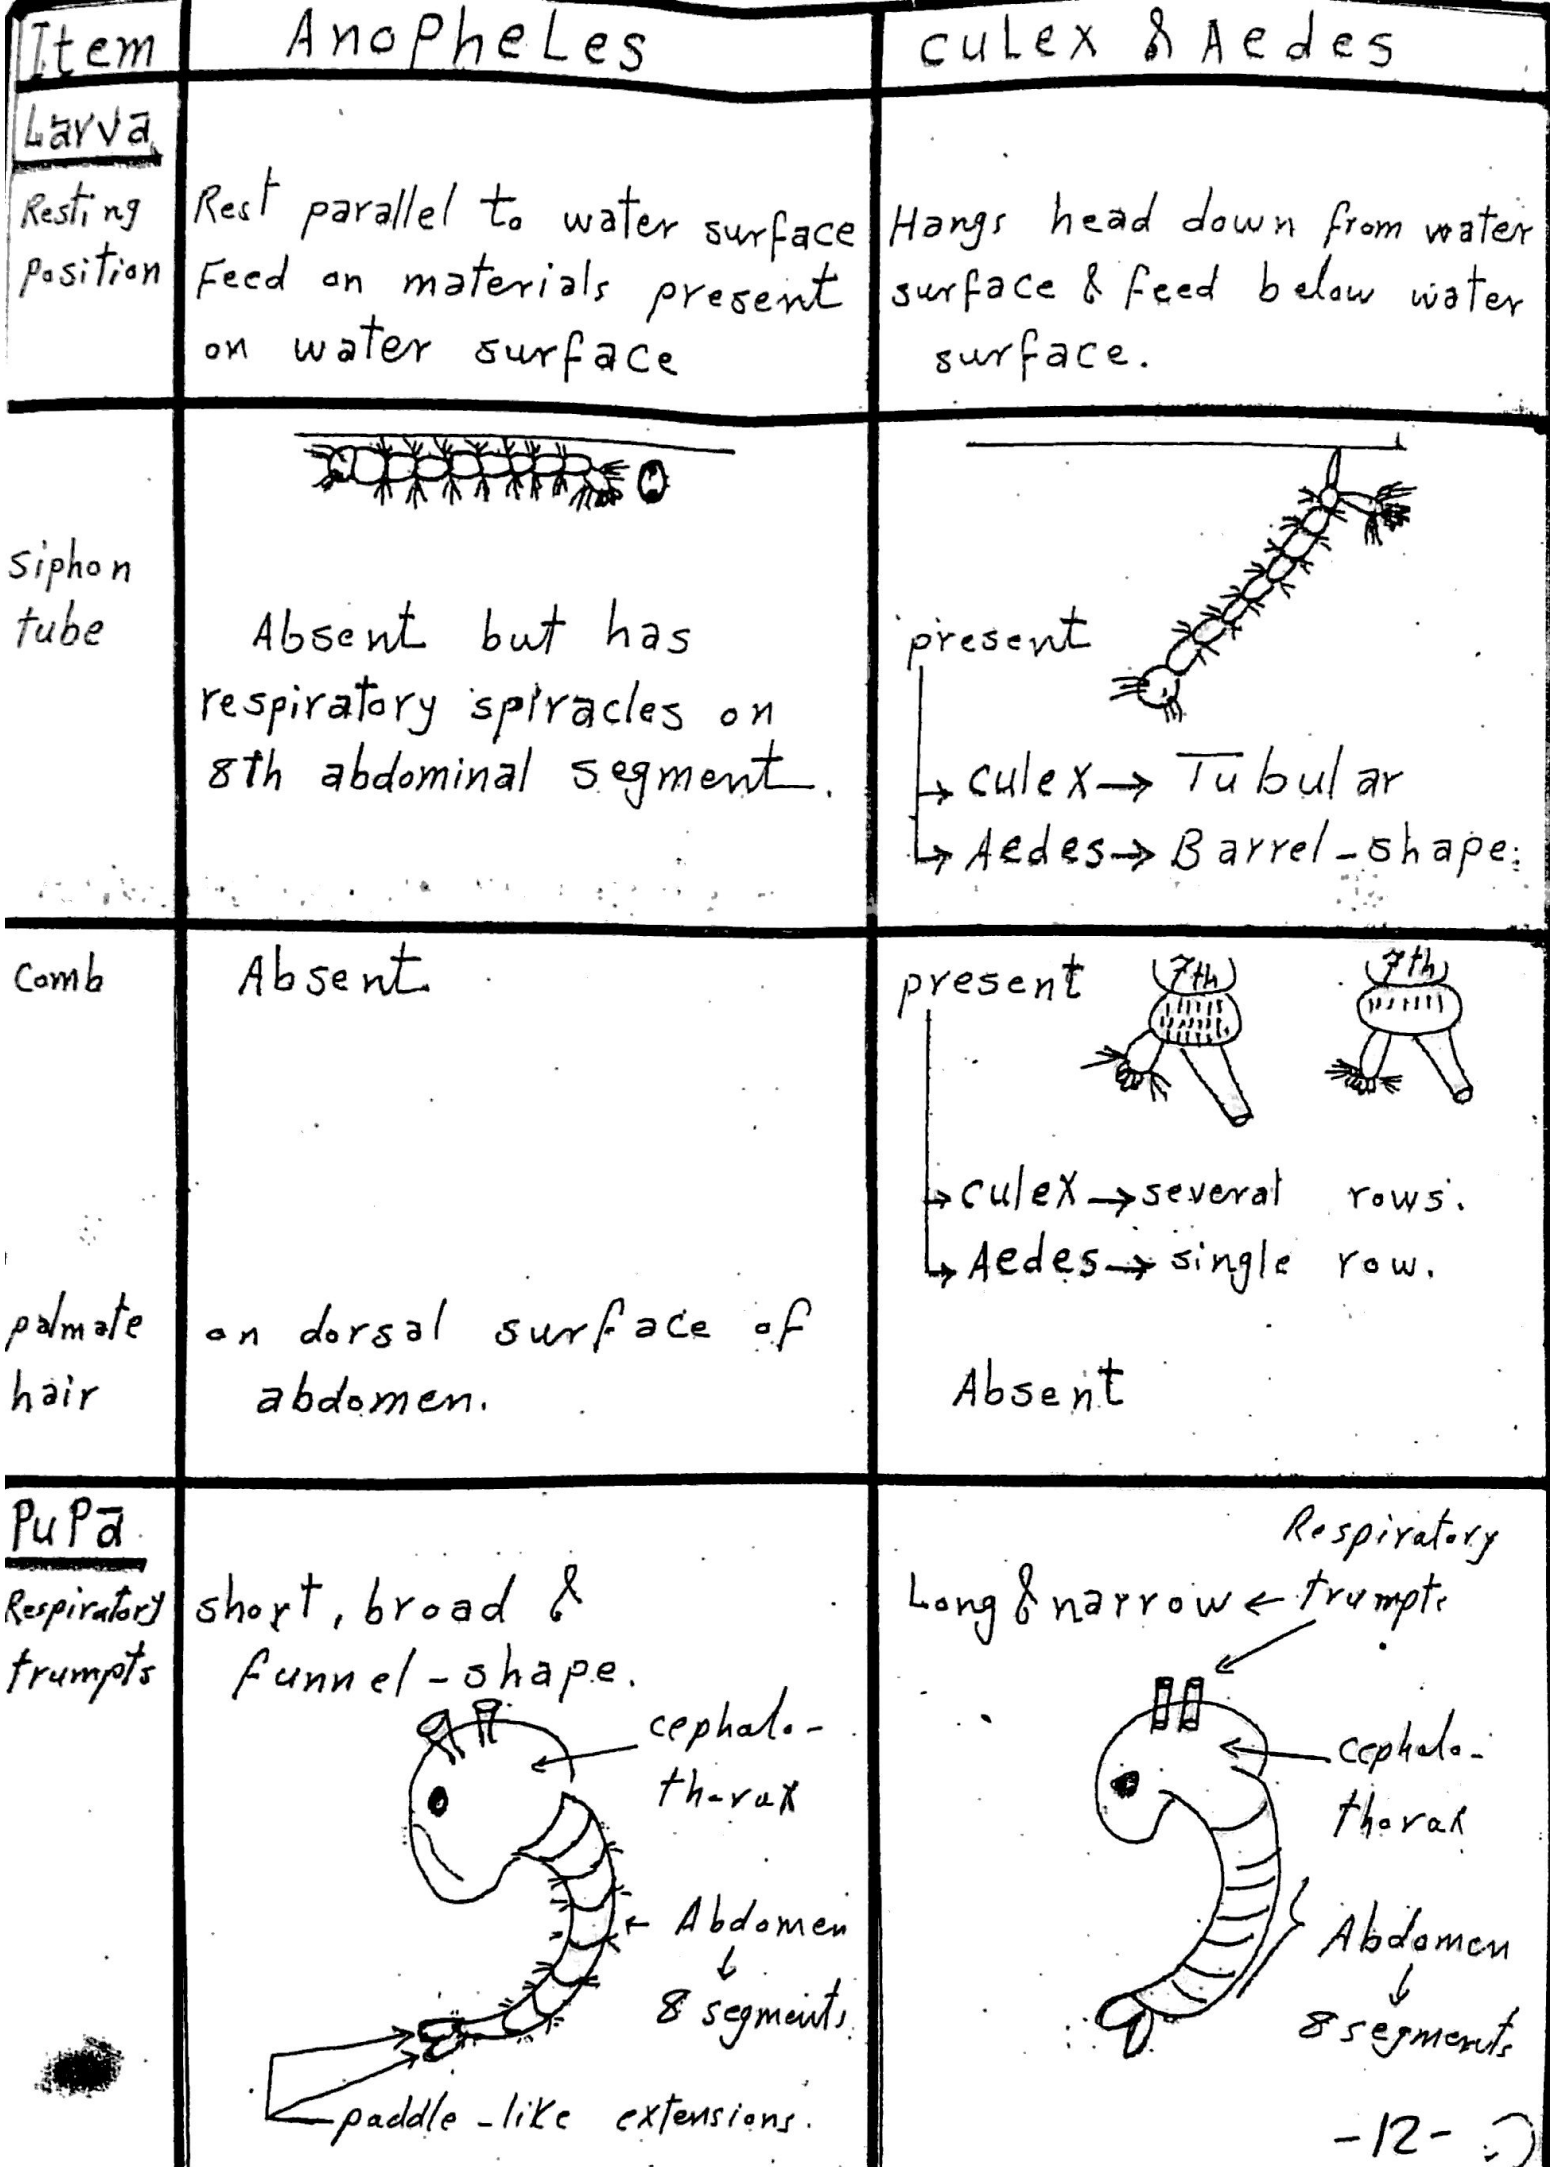 Item
Anopheles
culex & Aedes
Larva
Resting
position
Rest parallel to water surface
Feed on materials present
on water surface
Hangs head down from water
surface & feed below water
surface.
siphon
tube
Absent but has
respiratory spiracles on
8th abdominal segment.
present
culex → Tubular
Aedes → Barrel-shape.
comb
Absent
present
7th
7th
culex → several rows.
Aedes → single row.
palmate
hair
on dorsal surface of
abdomen.
Absent
Pupa
Respiratory
trumpts
short, broad &
funnel-shape.
cephalo-
thorax
Abdomen
↓
8 segments
paddle-like extensions.
Respiratory
Long & narrow ← trumpts
cephalo-
thorax
Abdomen
↓
8 segments
-12-